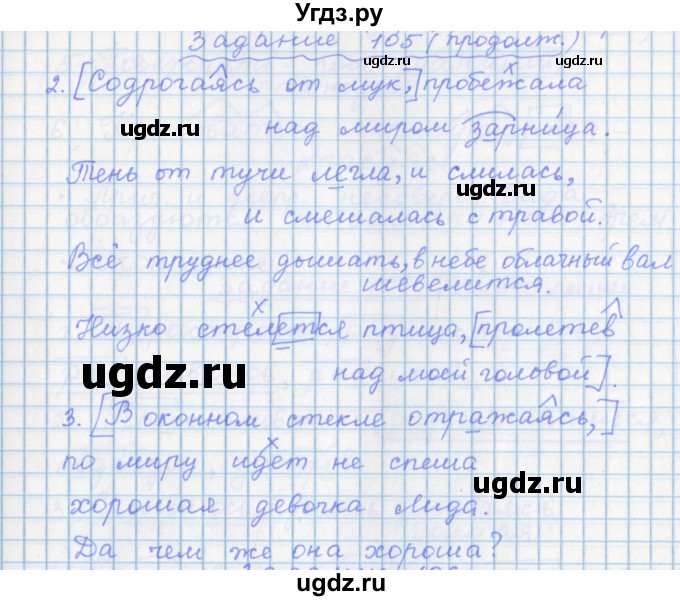 Угдз.ру
Задание 105 (продолж.)
2. [Содрогаясь от мук,] пробежала
над миром зарница.
ugdz.ru
ugdz.ru
Тень от тучи легла, и слилась,
ugdz.ru
и смешалась с травой.
Всё труднее дышать, в небе облачный вал
шевелится.
Низко стелется птица, [пролетев
над моей головой].
ugdz.ru
3. [В оконном стекле отражаясь,]
по миру идет не спеша
ugdz.ru
хорошая девочка Лида.
Да чем же она хороша?
ugdz.ru